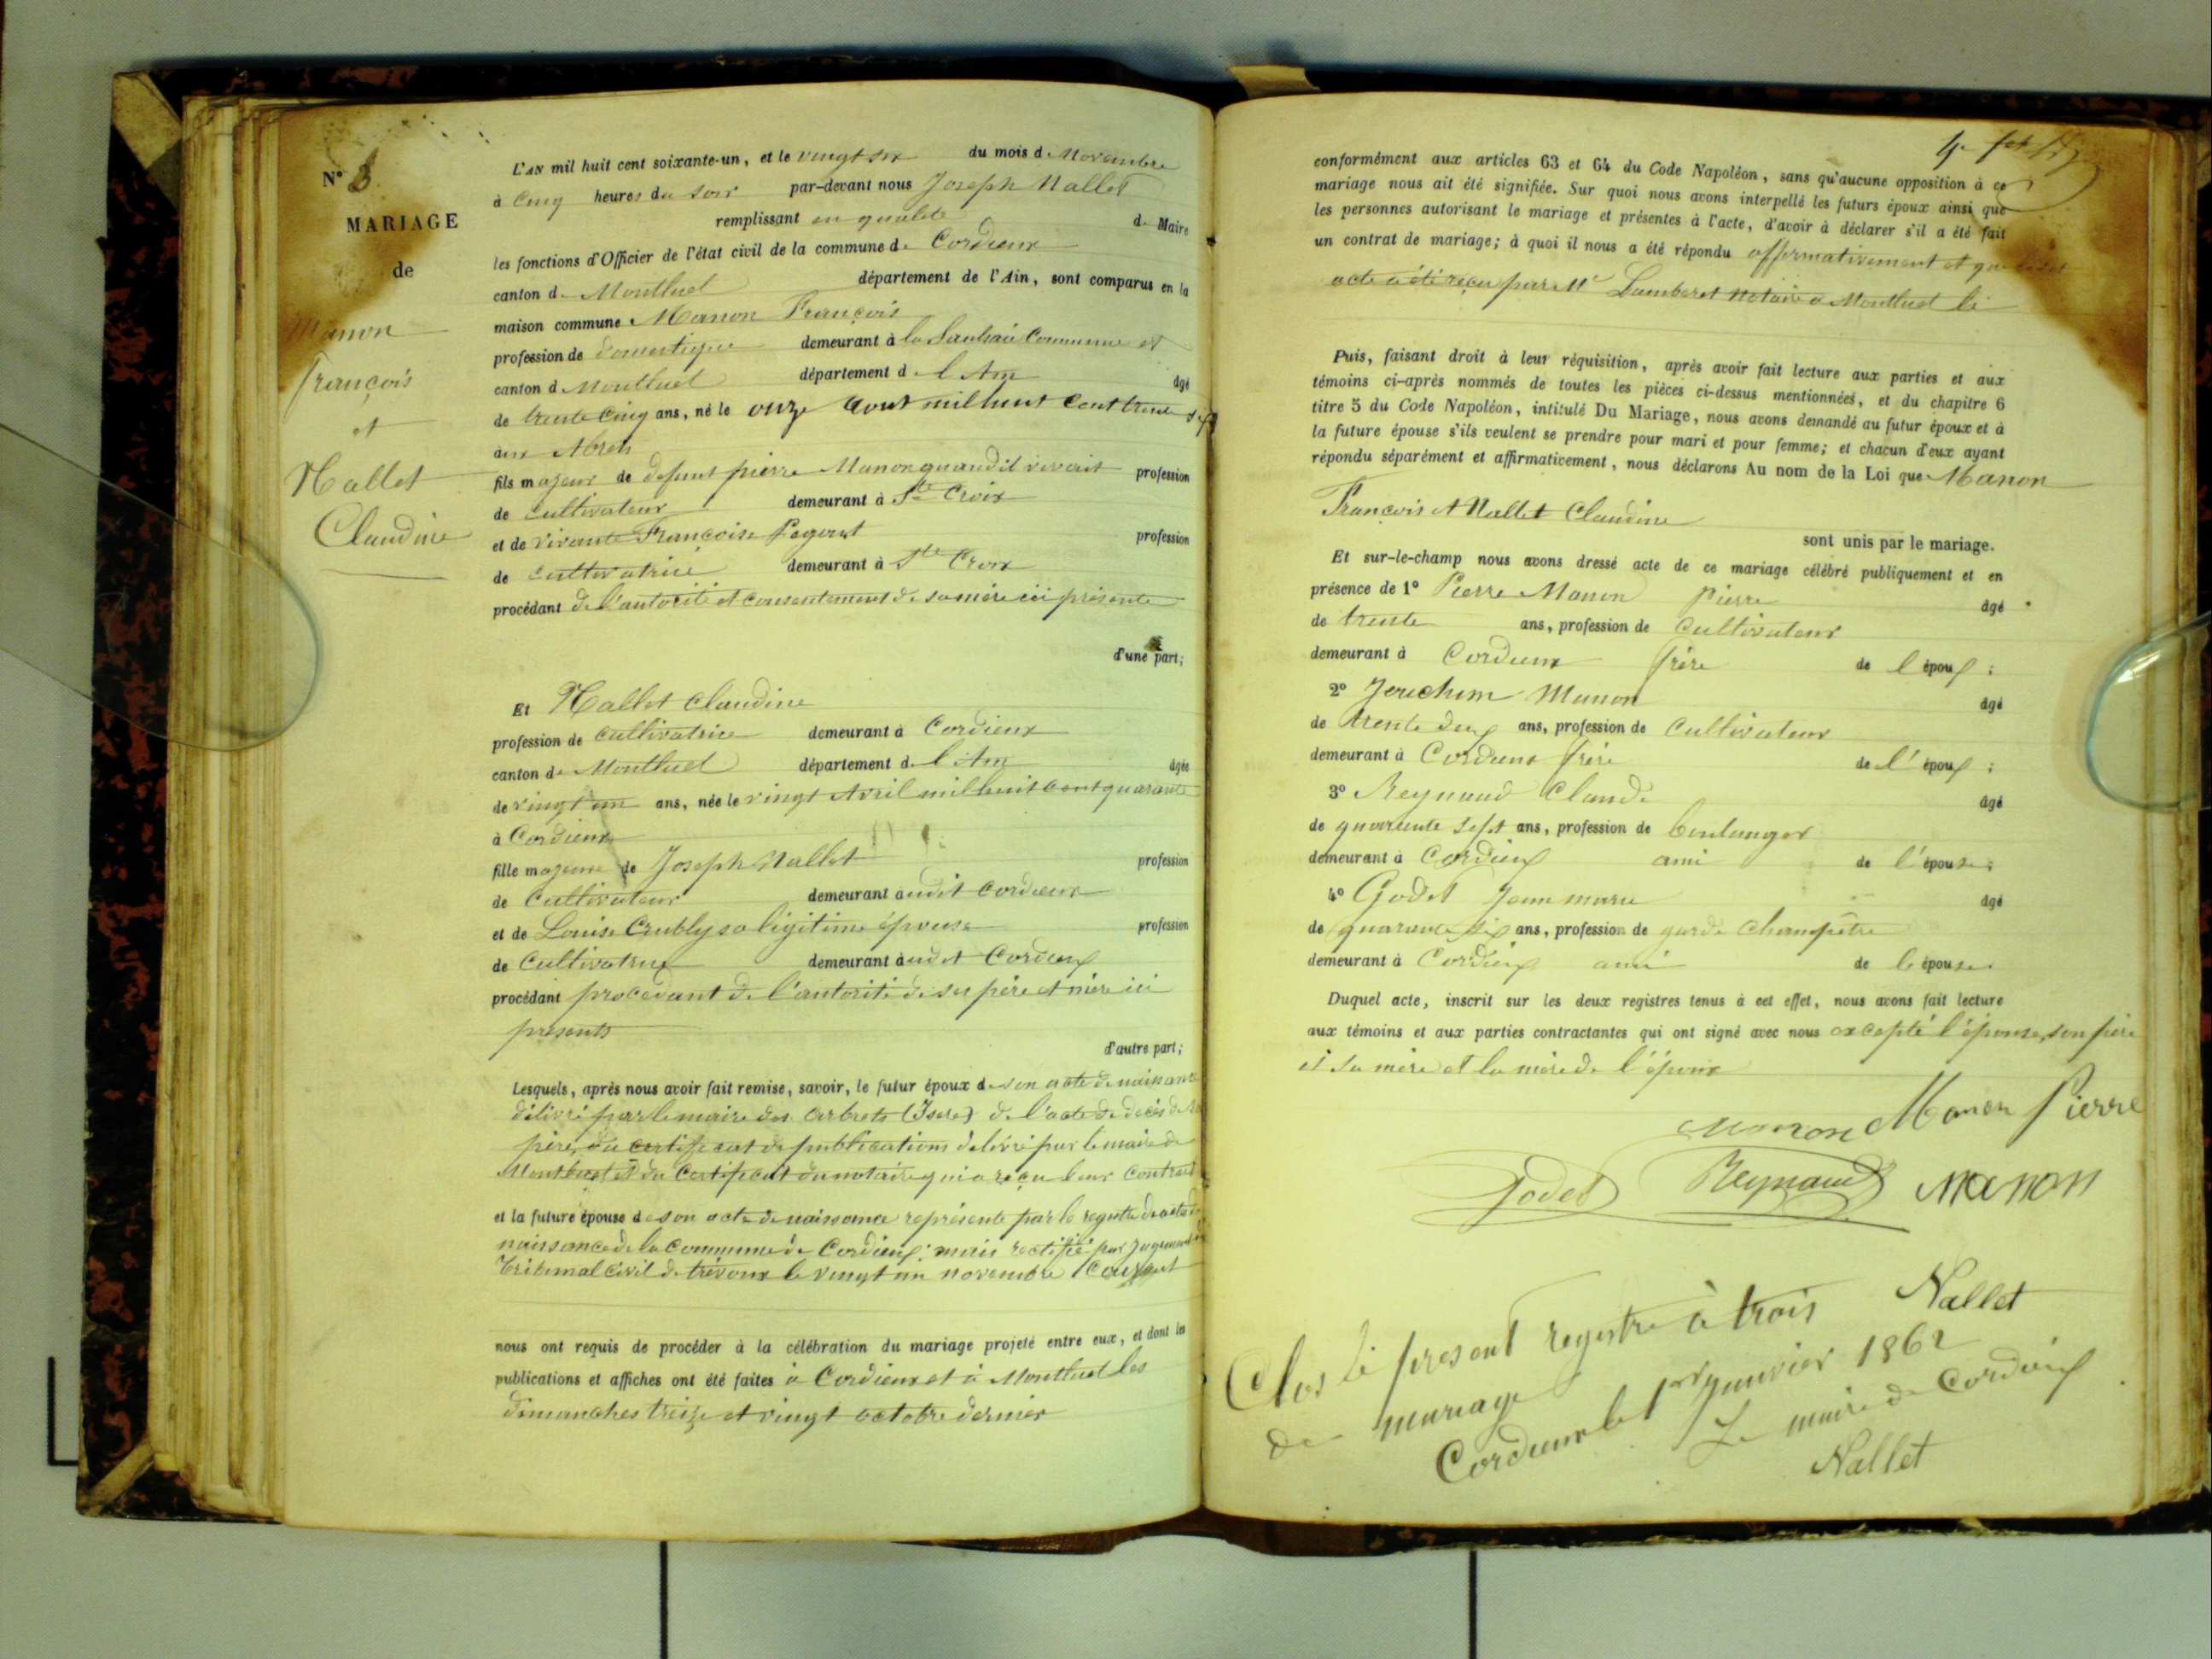 N° 3
MARIAGE
de
Manon
François
et
Nallet
Claudine
L'AN mil huit cent soixante-un, et le vingt six du mois de Novembre
à Cinq heures du soir par-devant nous Joseph Nallet
remplissant en qualité de Maire
les fonctions d'Officier de l'état civil de la commune de Cordieux
canton de Montluel département de l'Ain, sont comparus en la
maison commune Manon François
profession de domestique demeurant à la Commune et
canton de Montluel département de l'Ain âgé
de trente cinq ans, né le onze aout mil huit cent
aux
fils majeur de defunt pierre Manon quand il vivait profession
de cultivateur demeurant à Ste Croix
et de vivante Françoise profession
de cultivatrice demeurant à Ste Croix
procédant de l'autorité et consentement de sa mère ici présente
d'une part;
Et Nallet Claudine
profession de cultivatrice demeurant à Cordieux
canton de Montluel département de l'Ain âgée
de vingt un ans, née le vingt Avril mil huit cent quarante
à Cordieux
fille majeure de Joseph Nallet profession
de Cultivateur demeurant audit Cordieux
et de Louise Crubly sa légitime épouse profession
de Cultivatrice demeurant audit Cordieux
procédant procédant de l'autorité de ses père et mère ici
présents
d'autre part;
Lesquels, après nous avoir fait remise, savoir, le futur époux de son acte de naissance
délivré par le maire des (Isère) de l'acte de décès de
père, du certificat de publications délivré par le maire de
Montluel et du Certificat du notaire qui a reçu leur Contrat
et la future épouse de son acte de naissance représenté par le registre des actes de
naissance de la Commune de Cordieux mais rectifié par jugement du
Tribunal Civil de trévoux le vingt un novembre Courant
nous ont requis de procéder à la célébration du mariage projeté entre eux, et dont les
publications et affiches ont été faites à Cordieux et à Montluel les
dimanches treize et vingt octobre dernier
conformément aux articles 63 et 64 du Code Napoléon, sans qu'aucune opposition à ce
mariage nous ait été signifiée. Sur quoi nous avons interpellé les futurs époux ainsi que
les personnes autorisant le mariage et présentes à l'acte, d'avoir à déclarer s'il a été fait
un contrat de mariage; à quoi il nous a été répondu affirmativement et que
acte a été reçu par Me Lamberet notaire à Montluel le
Puis, faisant droit à leur réquisition, après avoir fait lecture aux parties et aux
témoins ci-après nommés de toutes les pièces ci-dessus mentionnées, et du chapitre 6
titre 5 du Code Napoléon, intitulé Du Mariage, nous avons demandé au futur époux et à
la future épouse s'ils veulent se prendre pour mari et pour femme; et chacun d'eux ayant
répondu séparément et affirmativement, nous déclarons Au nom de la Loi que Manon
François et Nallet Claudine
sont unis par le mariage.
Et sur-le-champ nous avons dressé acte de ce mariage célébré publiquement et en
présence de 1° Pierre Manon pierre âgé
de trente ans, profession de Cultivateur
demeurant à Cordieux frère de l'époux;
2° Jouchim Manon âgé
de trente deux ans, profession de Cultivateur
demeurant à Cordieux frère de l'époux;
3° Reynaud Claude âgé
de quarante sept ans, profession de boulanger
demeurant à Cordieux ami de l'épouse;
4° Godet Jean marie âgé
de quarante six ans, profession de garde Champêtre
demeurant à Cordieux ami de l'épouse.
Duquel acte, inscrit sur les deux registres tenus à cet effet, nous avons fait lecture
aux témoins et aux parties contractantes qui ont signé avec nous excepté l'épouse, son père
et sa mère et la mère de l'époux
Manon Manon Pierre
Godet Reynaud Manon
Nallet
Clos le présent registre à trois
de mariage
Cordieux le 1er janvier 1862
Le maire de Cordieux
Nallet